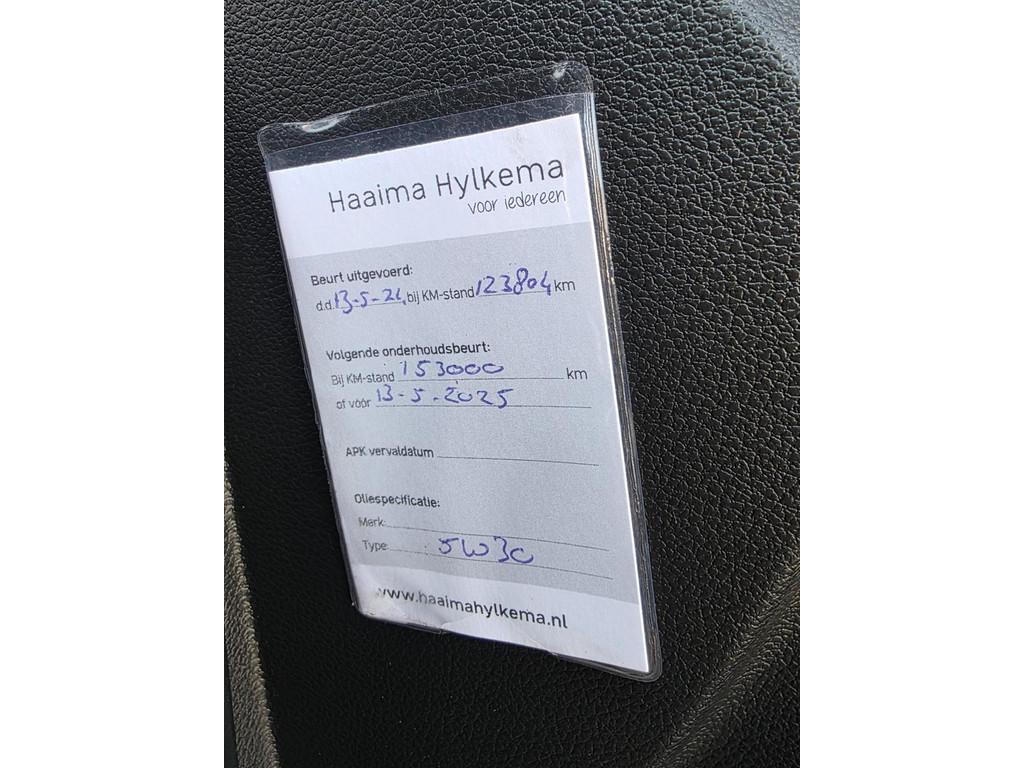 Haaima Hylkema
voor iedereen
Beurt uitgevoerd:
d.d. 13-5-24 bij KM-stand 123804 km
Volgende onderhoudsbeurt:
Bij KM-stand 153000 km
of vóór 13-5-2025
APK vervaldatum
Oliespecificatie:
Merk:
Type: 5W30
www.haaimahylkema.nl